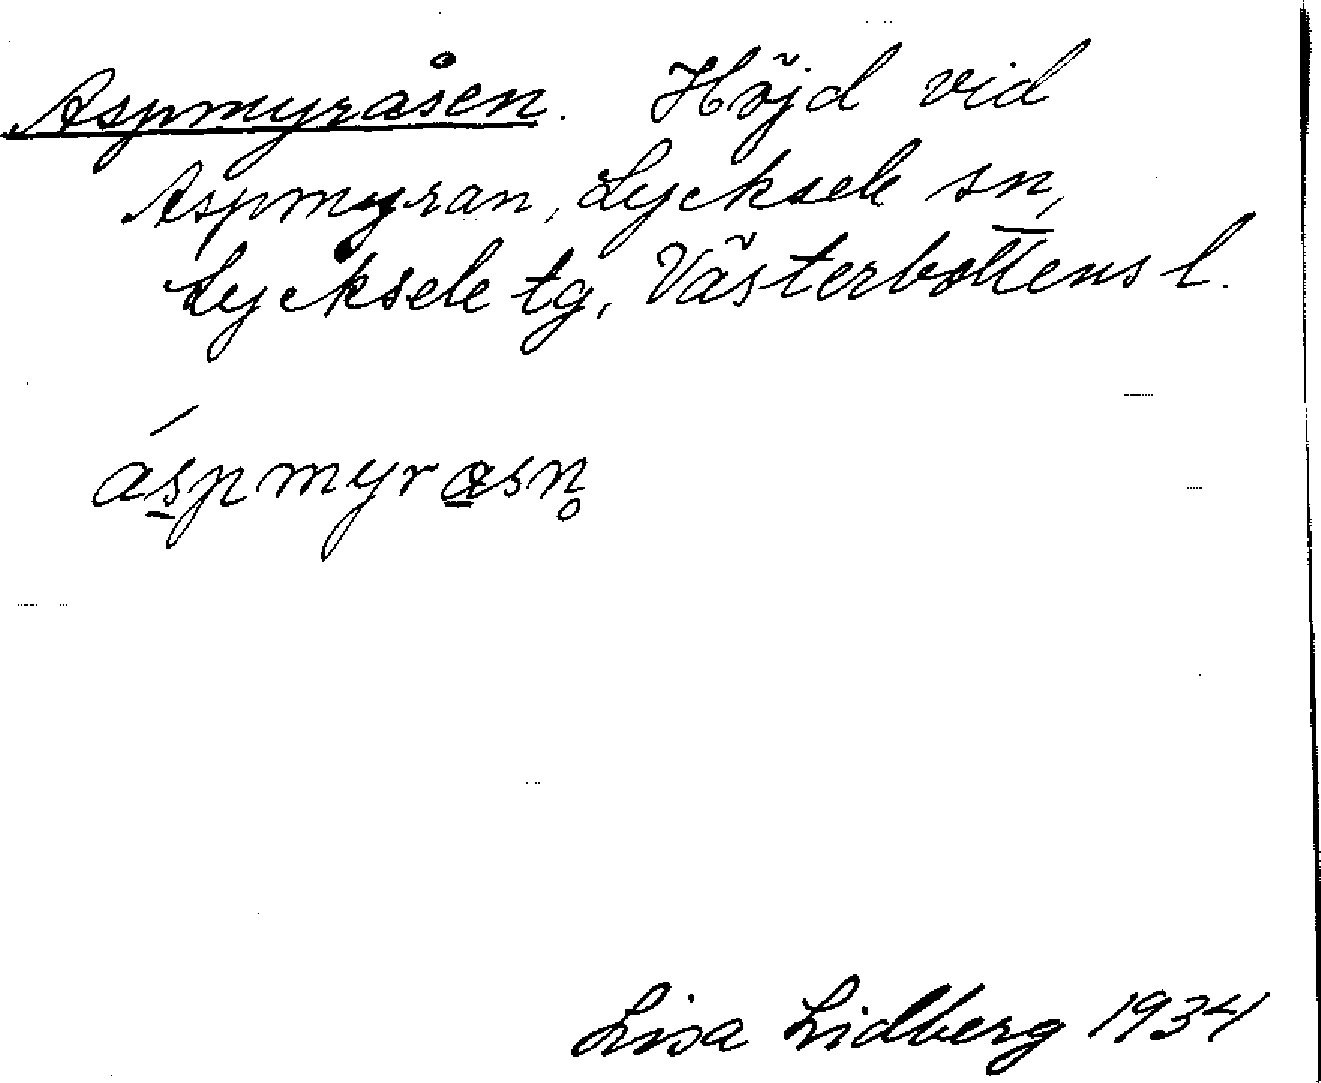 Aspmyråsen. Höjd vid
Aspmyran, Lycksele sn,
Lycksele tg, Västerbottens l.
áspmyrasn̥
Lisa Lidberg 1934